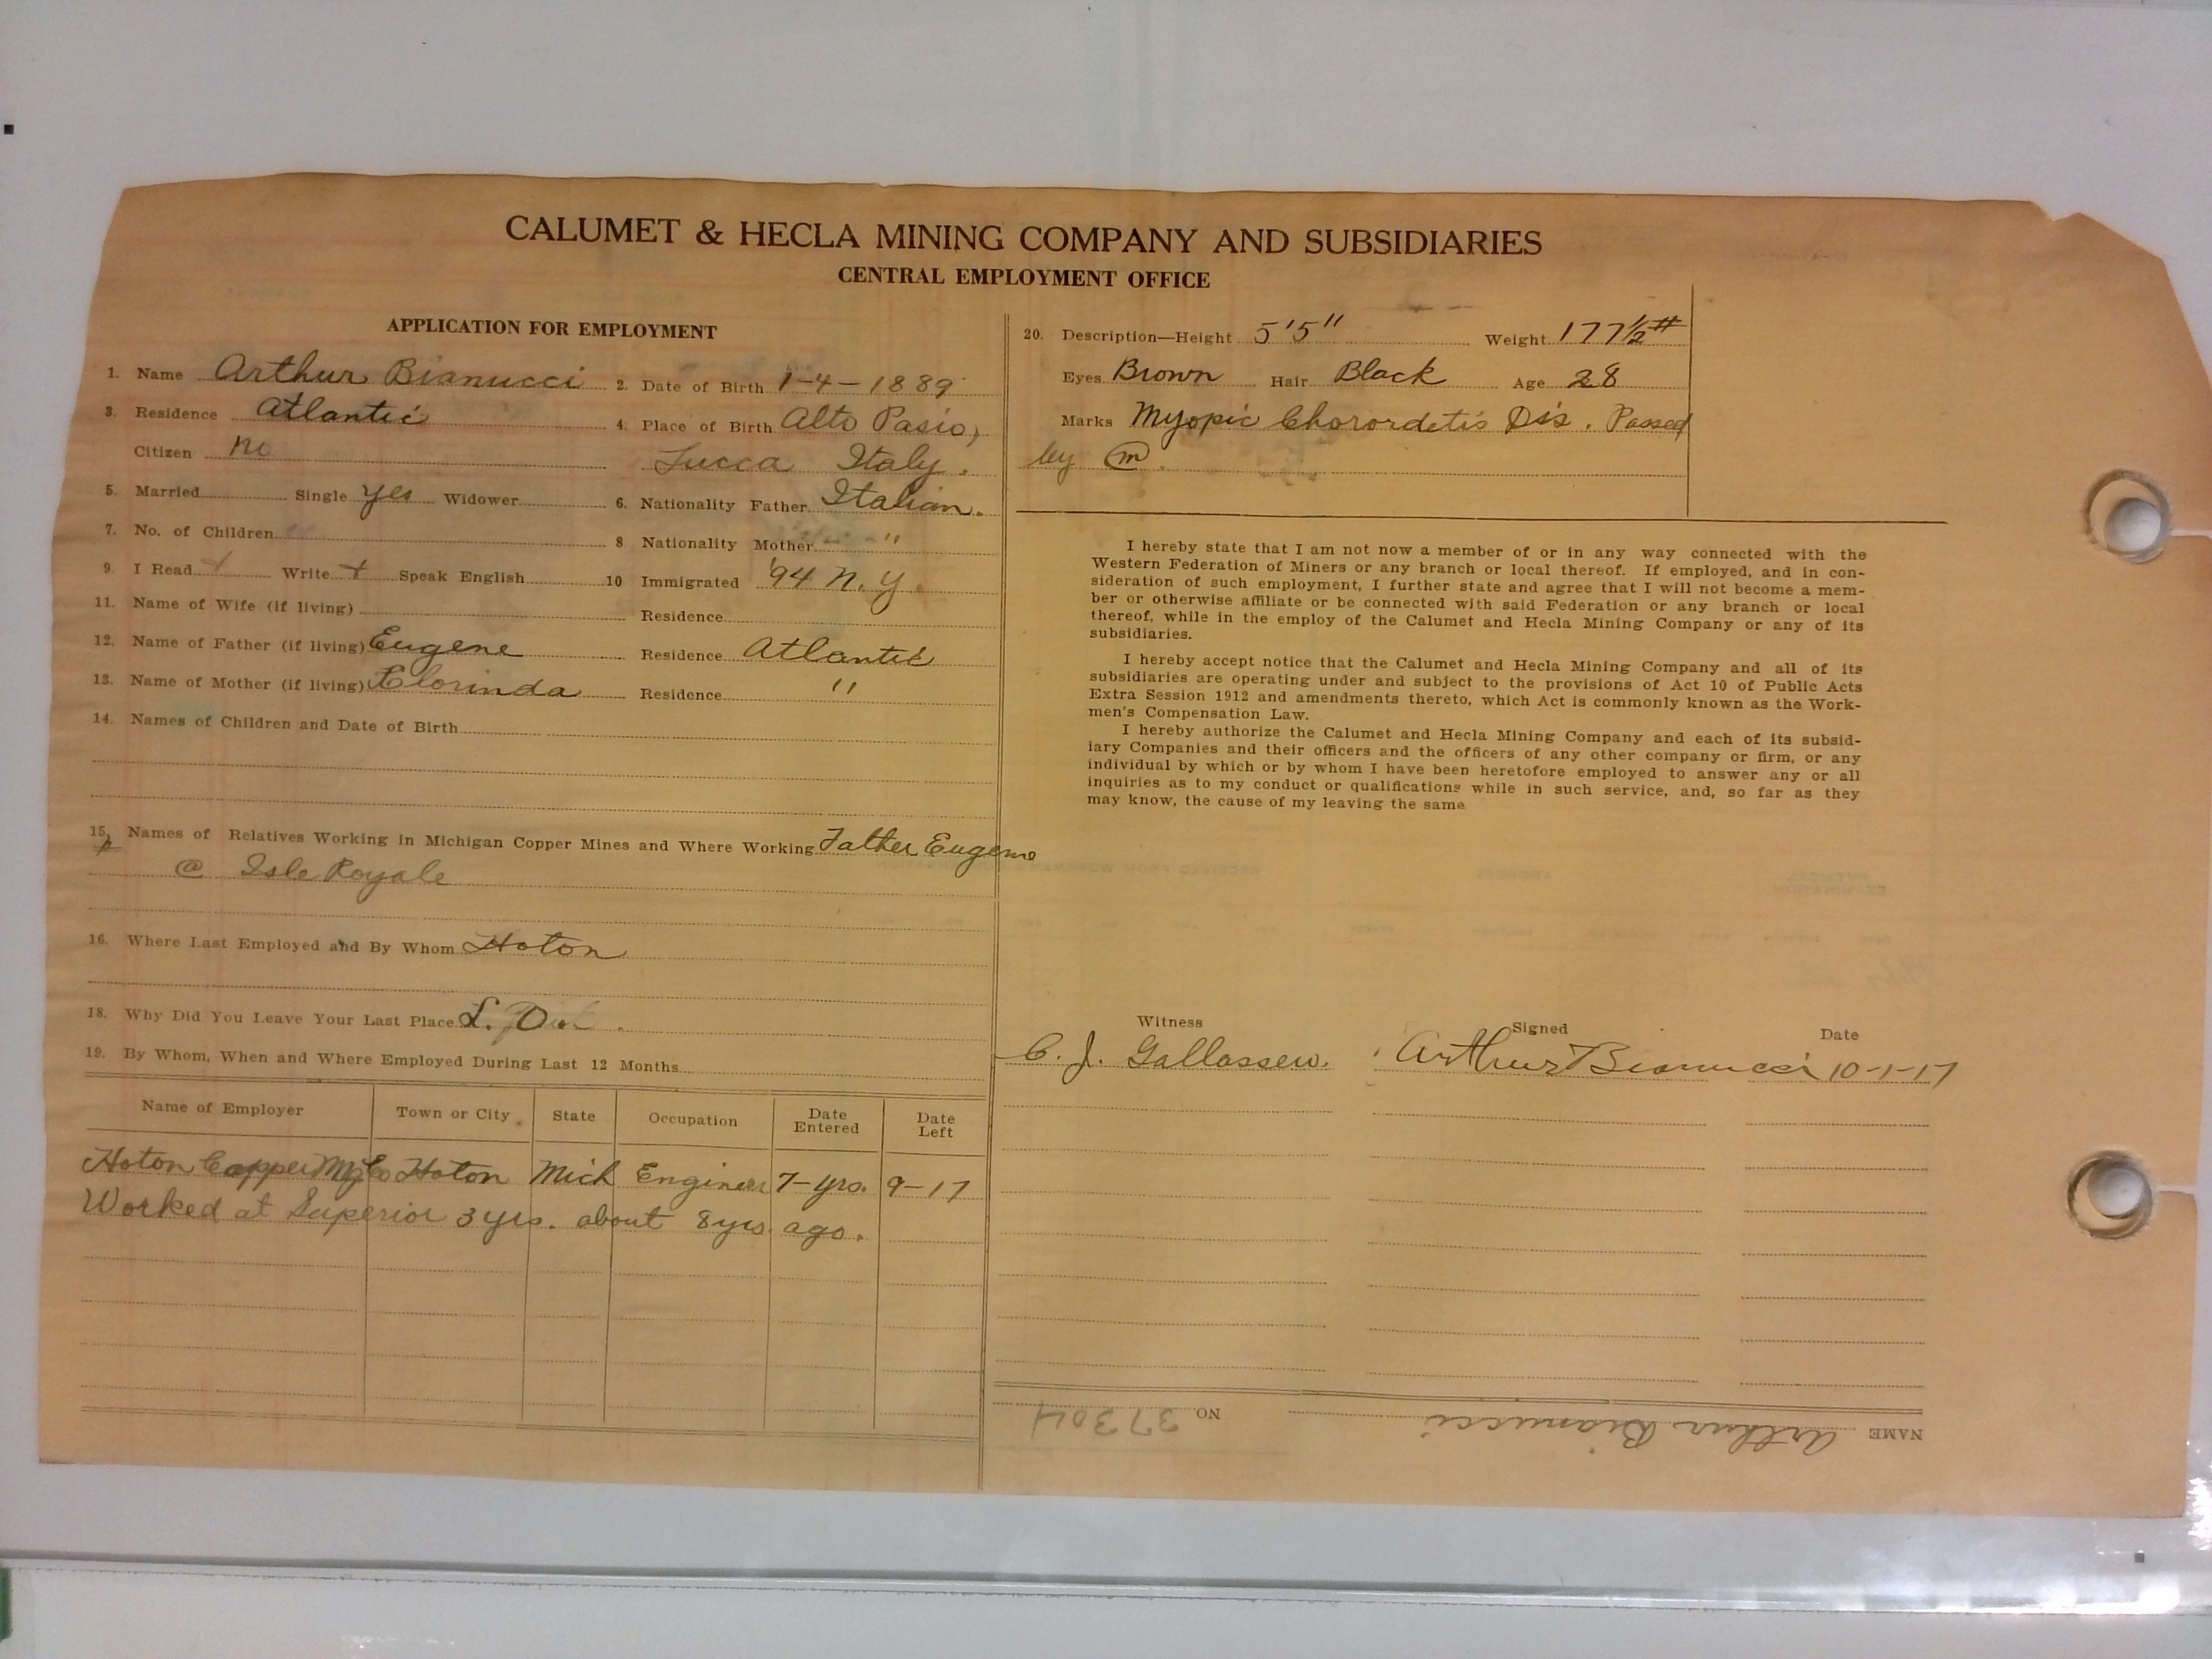 CALUMET & HECLA MINING COMPANY AND SUBSIDIARIES
CENTRAL EMPLOYMENT OFFICE
APPLICATION FOR EMPLOYMENT
1. Name Arthur Bianucci 2. Date of Birth 1-4-1889
3. Residence Atlantic 4. Place of Birth Alto Pasio,
Citizen no Lucca Italy.
5. Married Single yes Widower 6. Nationality Father Italian.
7. No. of Children 8 Nationality Mother "
9. I Read + Write + Speak English 10 Immigrated '94 N.Y.
11. Name of Wife (if living) Residence
12. Name of Father (if living) Eugene Residence Atlantic
13. Name of Mother (if living) Florinda Residence "
14. Names of Children and Date of Birth
15. Names of Relatives Working in Michigan Copper Mines and Where Working Father Eugene
@ Isle Royale
16. Where Last Employed and By Whom Hoton
18. Why Did You Leave Your Last Place L.
19. By Whom, When and Where Employed During Last 12 Months
Name of Employer Town or City State Occupation Date Entered Date Left
Hoton Copper Mg Co Hoton Mich Engineer 7-yrs. 9-17
Worked at Superior 3 yrs. about 8 yrs. ago.
20. Description—Height 5'5" Weight 177½#
Eyes Brown Hair Black Age 28
Marks Myopic Chorordetis Dis. Passed
by m.
I hereby state that I am not now a member of or in any way connected with the
Western Federation of Miners or any branch or local thereof. If employed, and in con-
sideration of such employment, I further state and agree that I will not become a mem-
ber or otherwise affiliate or be connected with said Federation or any branch or local
thereof, while in the employ of the Calumet and Hecla Mining Company or any of its
subsidiaries.
I hereby accept notice that the Calumet and Hecla Mining Company and all of its
subsidiaries are operating under and subject to the provisions of Act 10 of Public Acts
Extra Session 1912 and amendments thereto, which Act is commonly known as the Work-
men's Compensation Law.
I hereby authorize the Calumet and Hecla Mining Company and each of its subsid-
iary Companies and their officers and the officers of any other company or firm, or any
individual by which or by whom I have been heretofore employed to answer any or all
inquiries as to my conduct or qualifications while in such service, and, so far as they
may know, the cause of my leaving the same
Witness Signed Date
C. J. Arthur Bianucci 10-1-17
NAME Arthur Bianucci NO 37304